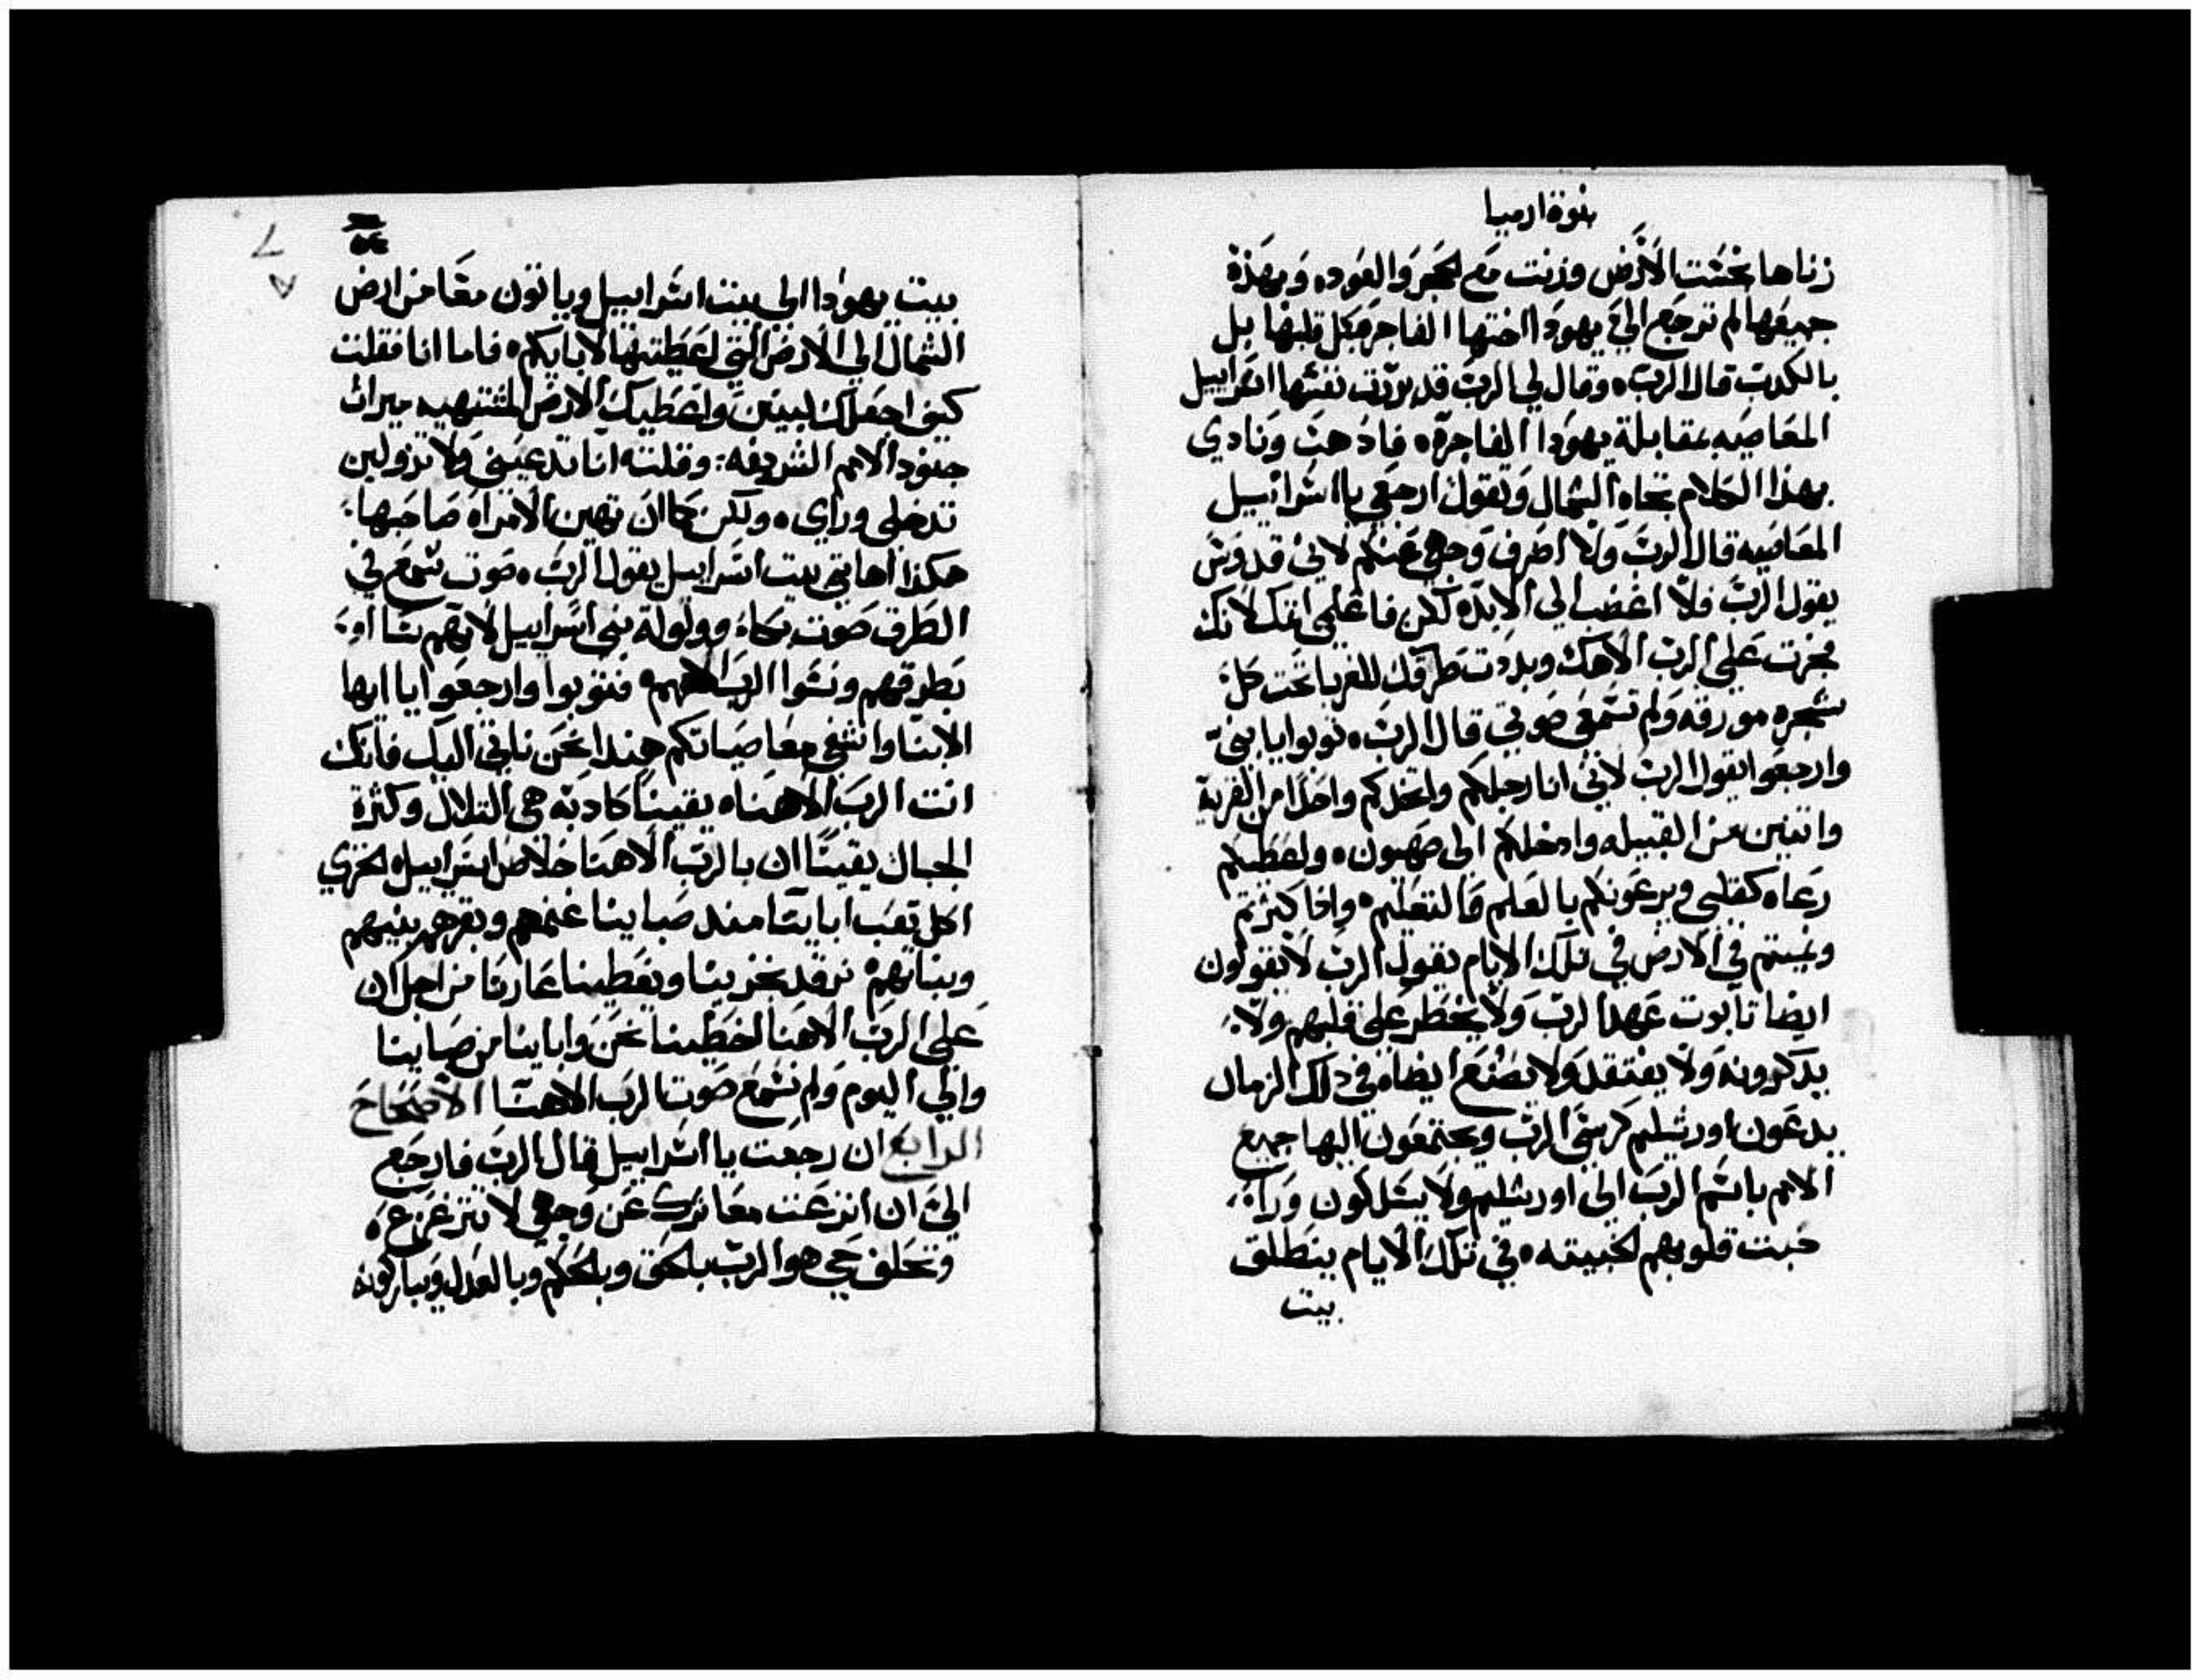 نبوة ارميا
زناها نجست الارض وزنت مع الحجر والعود، وبهذه
جميعها لم ترجع الي يهودا اختها الفاجره بكل قلبها بل
بالكدب قال الرب، وقال لي الرب قد بررت نفسها اسراييل
المعاصيه بمقابلة يهودا الفاجرة، فادهب ونادي
بهذا الكلام تجاه الشمال وتقول ارجعي يا اسراييل
المعاصيه قال الرب ولا اصرف وجهي عنكم لاني قدوس
يقول الرب فلا اغضب الي الابد، لكن فاعلمي اتمك لانك
فجرت علي الرب الاهك وبددت طرقك للغربا تحت كل
شجره مورقه ولم تسمعي صوتي قال الرب، توبوا يا بني
وارجعوا يقول الرب لاني انا رجلكم واتخدكم واحدا من القرية
واتنين من القبيله وادخلكم الي صهيون، واعطيكم
رعاه كقلبي ويرعونكم بالعلم والتعليم، وادا كترتم
ونميتم في الارض في تلك الايام يقول الرب لا يقولون
ايضا تابوت عهد الرب ولا يخطر علي قلبهم ولا
يدكرونه ولا يفتقد ولا يصنع ايضا، في دلك الزمان
يدعون اورشليم كرسي الرب ويجتمعون اليها جميع
الامم باسم الرب الي اورشليم ولا يسلكون ورا
خبت قلوبهم الخبيته، في تلك الايام ينطلق
بيت
بيت يهودا الي بيت اسراييل وياتون معا من ارض
الشمال الي الارض التي اعطيتها لابايكم، فاما انا فقلت
كيف اجعلك لبنين واعطيك الارض المشتهيه ميرات
جنود الامم الشريفه: وقلت انا تدعيني ولا تزولين
تدخلي وراي، ولكن كما ان تهين الامراه صاحبها
هكدا اهانني بيت اسراييل يقول الرب، صوت سمع في
الطرق صوت بكاء وولولة بني اسراييل لانهم تساوء
بطرقهم ونسوا الرب الاههم، فتوبوا وارجعوا يا ايها
الابنا واشفي معاصياتكم هندا نحن ناتي اليك فانك
انت الرب الاهنا، يقينا كادبه هي التلال وكثرة
الجبال يقينا ان بالرب الاهنا خلاص اسراييل، الخزي
اكل تعب ابايتا مند صباينا غنمهم وبقرهم بنيهم
وبناتهم، نرقد بخزينا ويغطينا عارنا من اجل ان
علي الرب الاهنا اخطينا نحن وابايتا من صباينا
والي اليوم ولم نسمع صوت الرب الاهنا الاصحاح
الرابع ان رجعت يا اسراييل قال الرب فارجع
الي ان انزعت معاترك عن وجهي لا تتزعزع،
وتحلف حي هو الرب بالحق وبالحكم وبالعدل ويباركونه